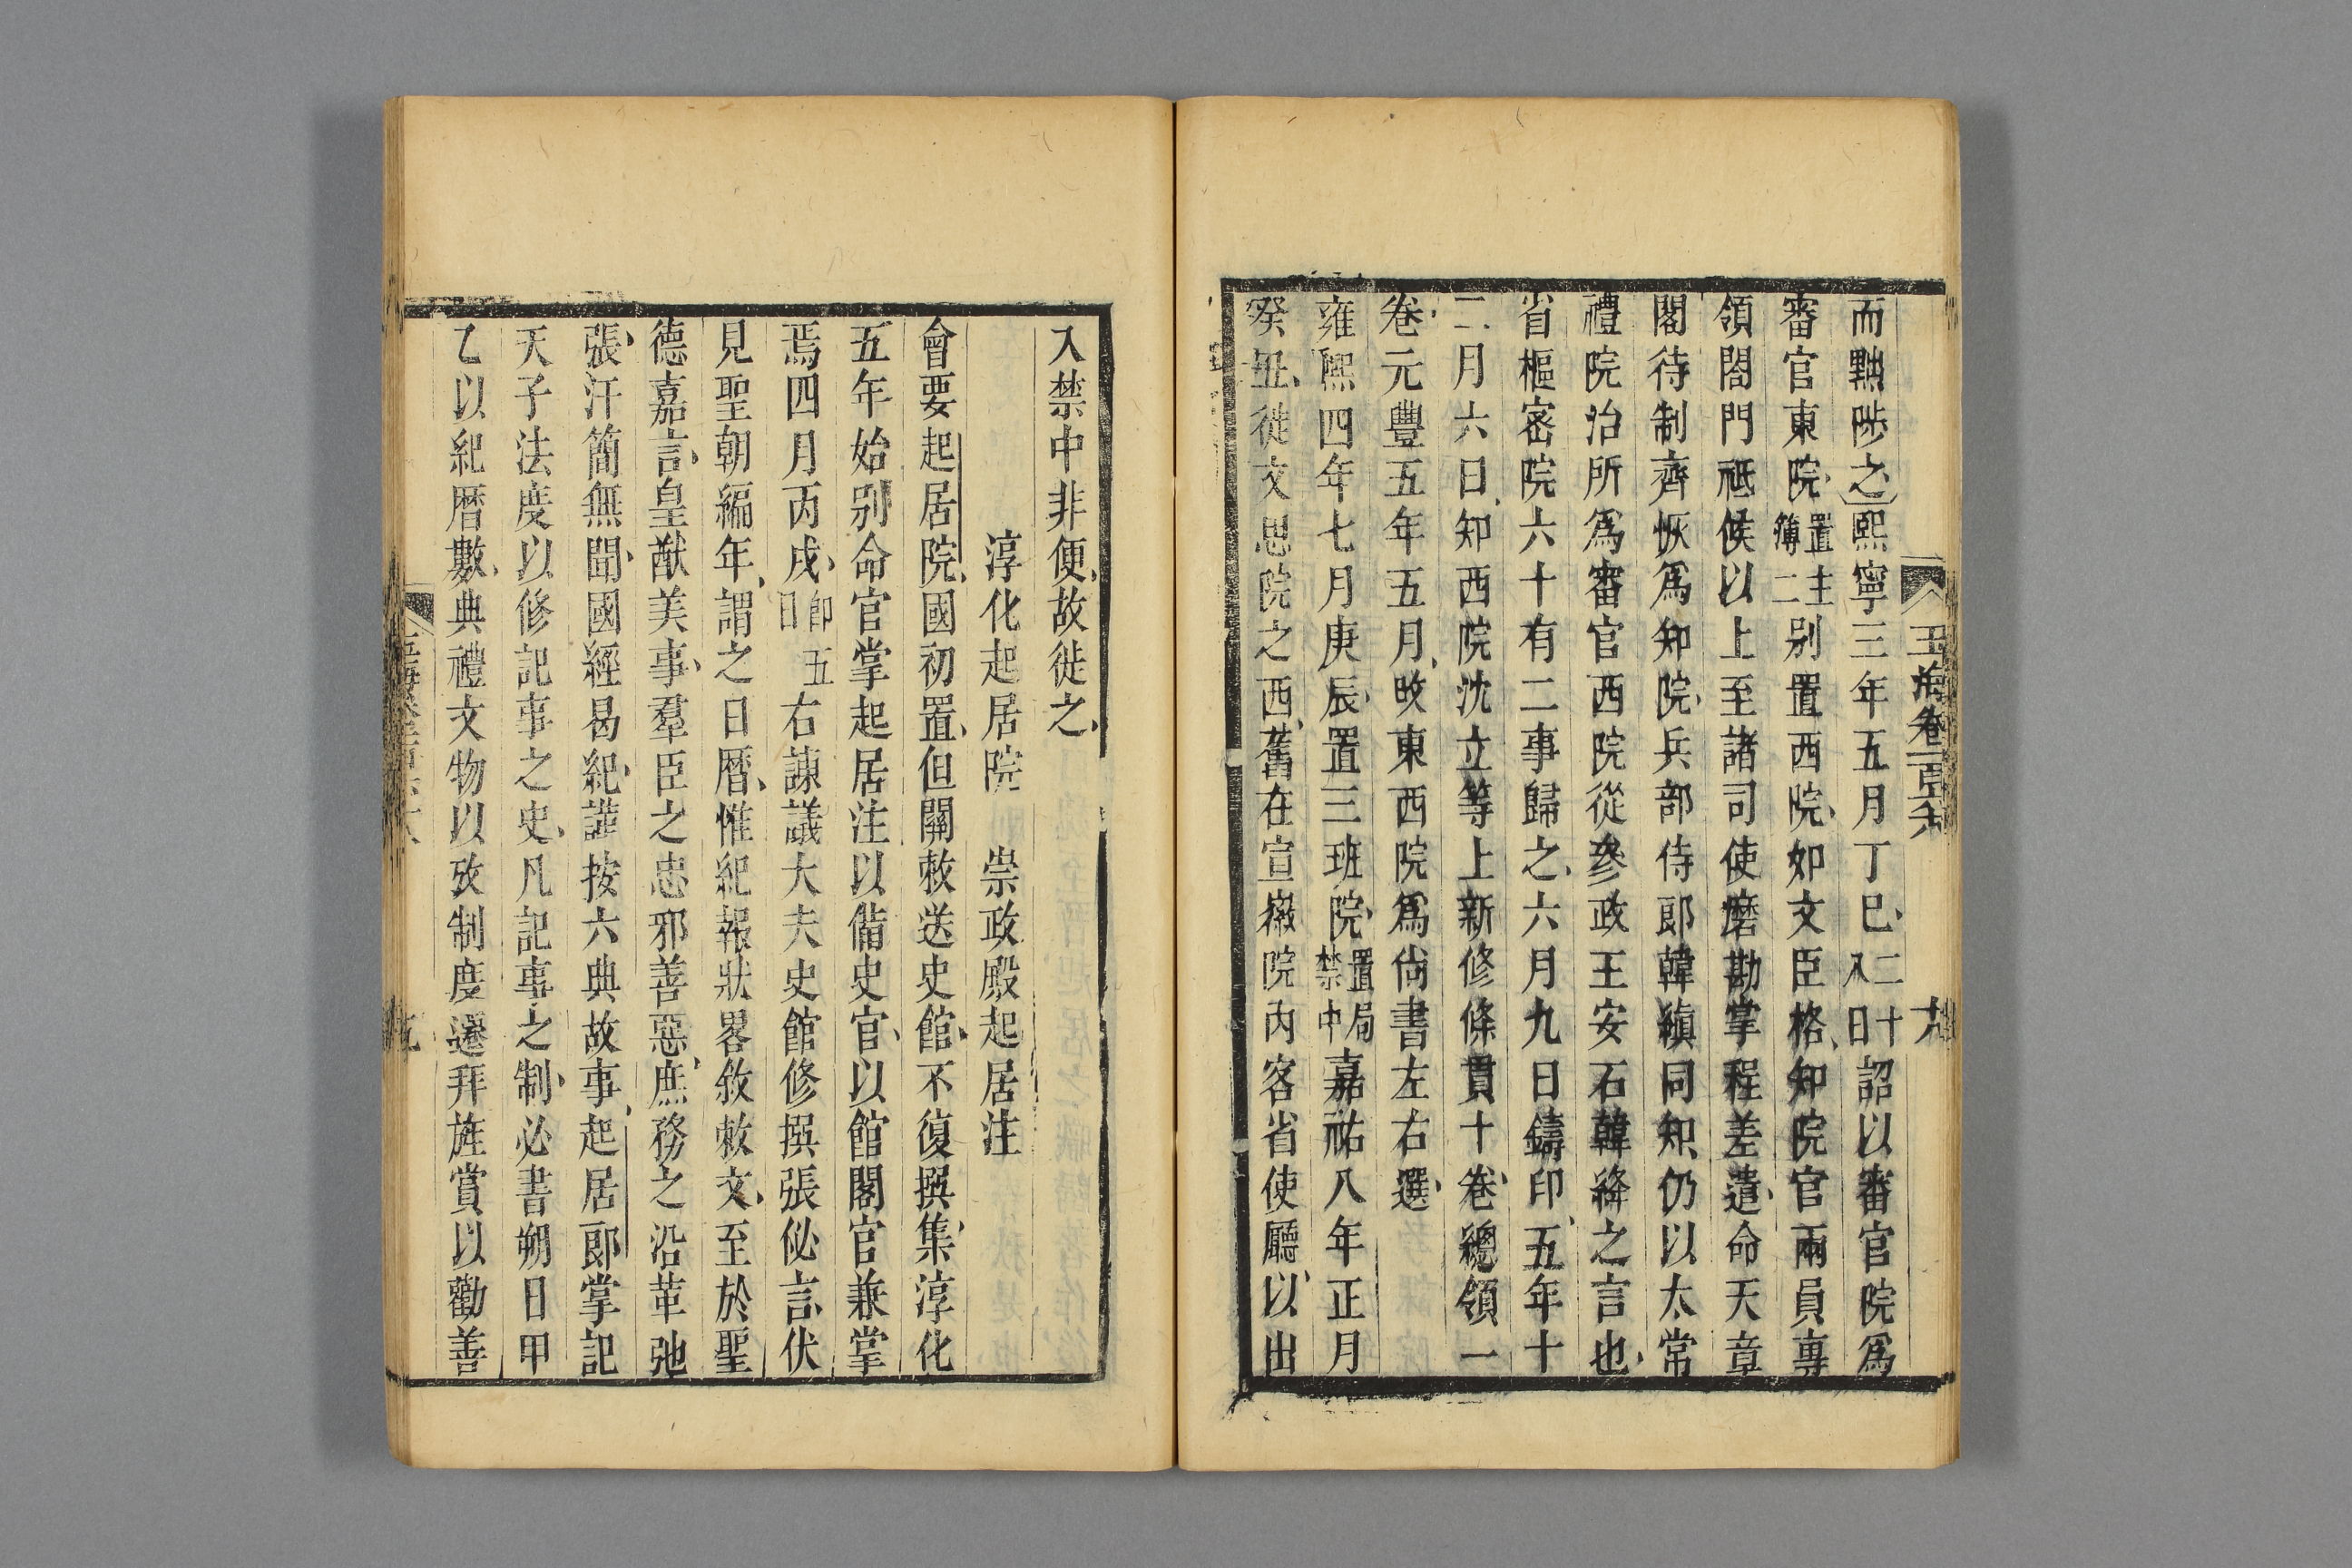 玉海卷一百六十八
十八
而黜陟之熙寧三年五月丁巳二十八日詔以審官院爲
審官東院置主簿二别置西院如文臣格知院官兩員專
領閤門祗候以上至諸司使磨勘掌程差遣命天章
閣待制齊恢爲知院兵部侍郎韓縝同知仍以太常
禮院治所爲審官西院從參政王安石韓絳之言也
省樞密院六十有二事歸之六月九日鑄印五年十
二月六日知西院沈立等上新修條貫十卷總領一
卷元豐五年五月改東西院爲尙書左右選
雍熙四年七月庚辰置三班院置局禁中嘉祐八年正月
癸丑徙文思院之西舊在宣徽院內客省使廳以出
入禁中非便故徙之
淳化起居院　崇政殿起居注
會要起居院國初置但關敕送史館不復撰集淳化
五年始别命官掌起居注以備史官以館閣官兼掌
焉四月丙戌即五日右諫議大夫史館修撰張佖言伏
見聖朝編年謂之日曆惟紀報狀畧敘敕文至於聖
德嘉言皇猷美事羣臣之忠邪善惡庶務之沿革弛
張汗簡無聞國經曷紀謹按六典故事起居郎掌記
天子法度以修記事之史凡記事之制必書朔日甲
乙以紀曆數典禮文物以攷制度遷拜旌賞以勸善